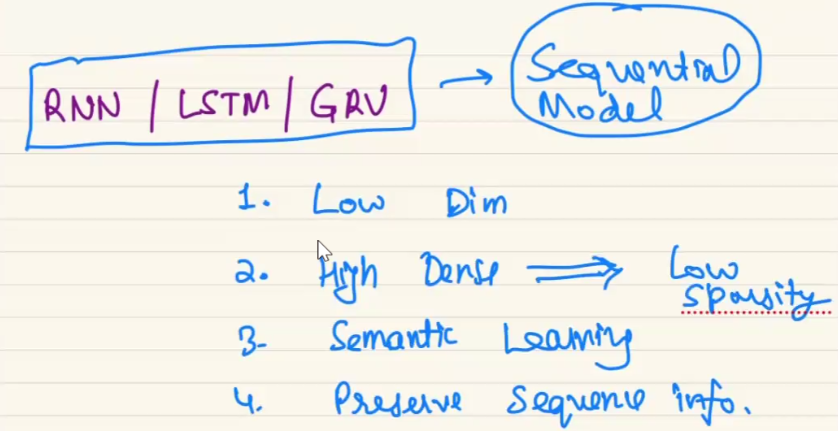 RNN / LSTM / GRU → Sequential
Model
1. Low Dim
2. High Dense ⇒ Low
Sparsity
3- Semantic Learning
4. Preserve Sequence info.